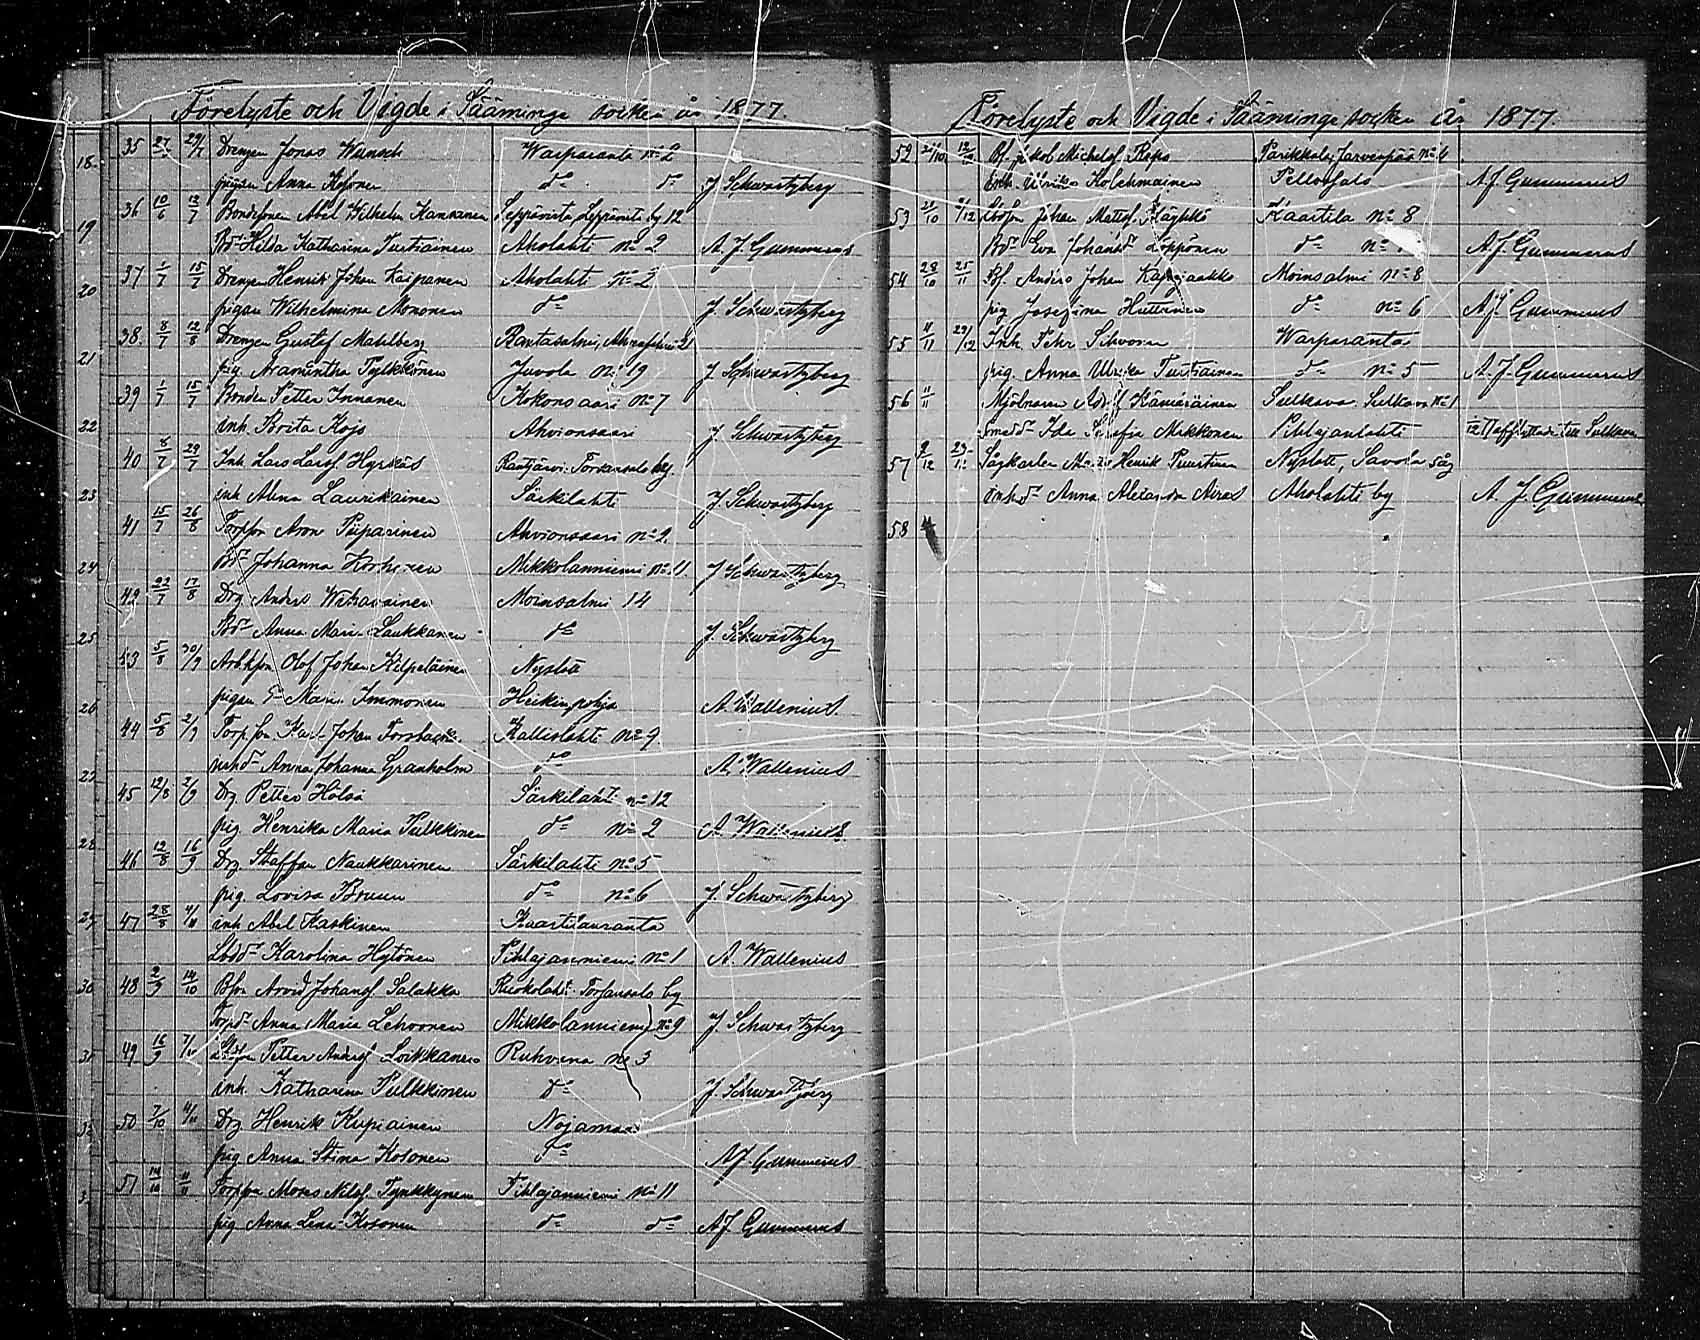 Förelyste och Vigde i Sääminge socken år 1877.
35 29/7 Drengen Jonas Warparanta No 2
pigan Anna Kosonen do do J. Schwartzberg
36 10/6 12/7 Bondesonen Abel Wilhelm Kankanen Leppävirta Leppävirta by 12
Bd Hilda Katharina Turtiainen Aholahti No 2 A. J. Gummerus
37 1/7 15/7 Drengen Henrik Johan Kaipanen Aholahti No 2
pigan Wilhelmina Mononen do J. Schwartzberg
38. 8/7 12/8 Drengen Gustaf Mahlberg Rantasalmi,
pig. Aramintha Pylkkönen Juvola No 19 J. Schwartzberg
39 1/7 15/7 Bonden Petter Innanen Kokonsaari No 7
inh. Brita Kojo Ahvionsaari J. Schwartzberg
40 8/7 29/7 Inh Lars Larsf Hyrkäs Rautjärvi Torsansalo by.
inh Alena Laurikainen Särkilahti J. Schwartzberg
41 15/7 26/8 Torpson Aron Piiparinen Ahvionsaari No 2.
Bd Johanna Korhonen Mikkolanniemi No 11. J. Schwartzberg
42 22/7 17/8 Drg Anders Moinsalmi 14
Bd Anna Mari Laukkanen do J. Schwartzberg
43 5/8 30/9 Arbkson Olof Johan Kilpeläinen Nyslott
pigan Maria Immonen Heikinpohja A. Wallenius.
44 5/8 2/9 Torp.son Karl Johan Forsbacka Kalliolahti No 9
inhd Anna Johanna Granholm do A. Wallenius
45 12/8 2/9 Drg Petter Hölsä Särkilahti No 12
pig. Henrika Maria Pulkkinen do No 2 A. Wallenius.
46 12/8 16/9 Drg. Staffan Naukkarinen Särkilahti No 5
pig. Lovisa Bruun do No 6 J. Schwartzberg
47 28/8 4/11 inh Abel Kaskinen Kaartilanranta
Lbdd Karolina Hytönen Pihlajanniemi No 1 A. Wallenius
48 2/9 14/10 Bson Arvid Johansf. Salakka Ruokolaht. Torsansalo by
Torpd Anna Maria Lehvonen Mikkolanniemi No 9 J. Schwartzberg
49 16/9 Petter Andersf Loikkanen Ruhvana No 3
inh. Katharina Pulkkinen do J. Schwartzberg
50 7/10 4/11 Drg Henrik Kupiainen Nojamaa
pig Anna Stina Kosonen do A J Gummerus
51 14/10 11/11 Torpson Moses Nilsf. Tynkkynen Pihlajanniemi No 11
pig Anna Lena Kosonen do do A J Gummerus
Förelyste och Vigde i Sääminge socken År 1877.
52 21/10 Bf. Jakob Michelsf Repo Parikkala, Järvenpää No 4
Enk. Ulrika Kolehmainen Pellossalo A J Gummerus
53 21/10 9/12 Lbdson Johan Matsf. Käyhkö Kaartila No 8
Bd Eva Johansd Loppönen do No A. J. Gummerus
54 28/10 25/11 Bf. Anders Johan Kapojaakko Moinsalmi No 8
pig Josefina Huttunen do No 6 A J. Gummerus
55 11/11 29/12 Inh. Pehr Silvonen Warparanta
pig. Anna Ulrika Turtiainen do No 5 A. J. Gummerus
56 11/11 Mjölnaren Adolf Kämäräinen Sulkava. Sulkava No 1
Smedd Ida Sofia Mikkonen Pihlajanlahti afflyttade till Sulkava
57 9/12 Sågkarlen Henrik Puustinen Nyslott, Savola såg
inhd Anna Airas Aholahti by A. J. Gummerus
58
18
19
20
21
22
23
24
25
26
27
28
29
30
31
32